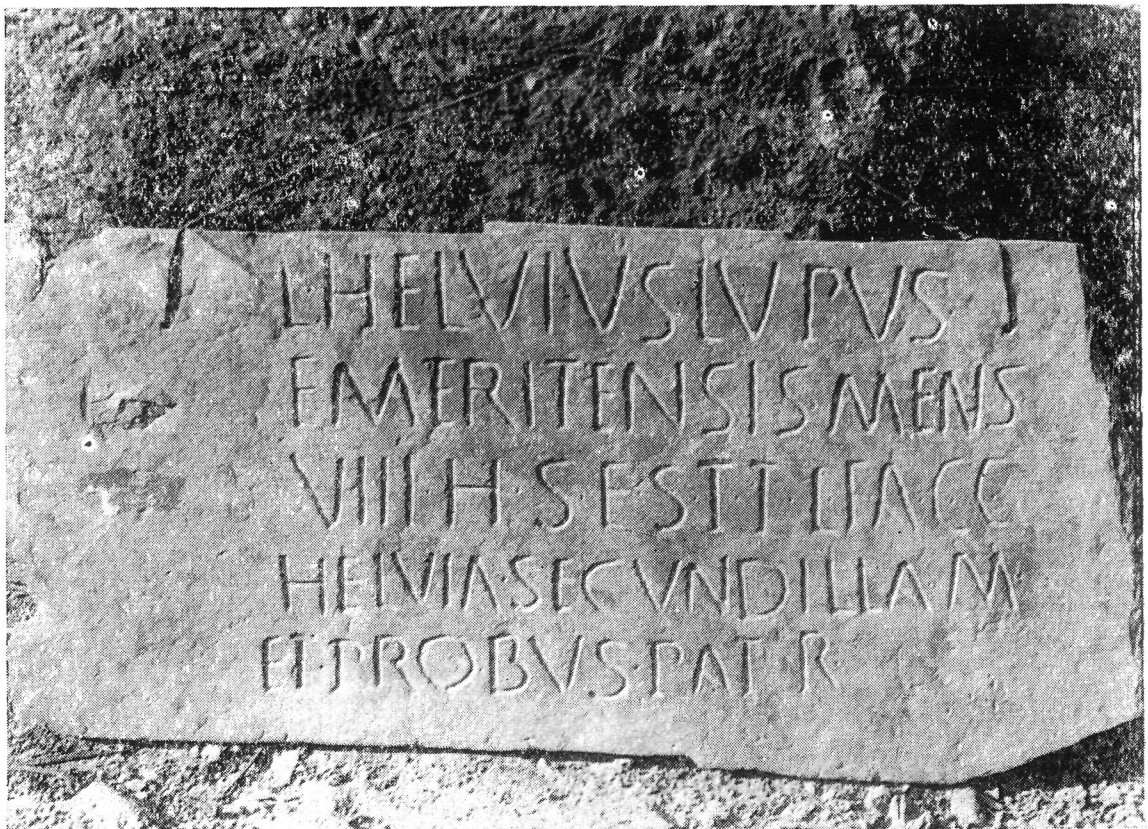 L HELVIVS LVPVS
EMERITENSIS MENS
VIII H·S·E·S·T·T·L FAC C
HELVIA·SECVNDILLA M
ET·PROBVS·PATR